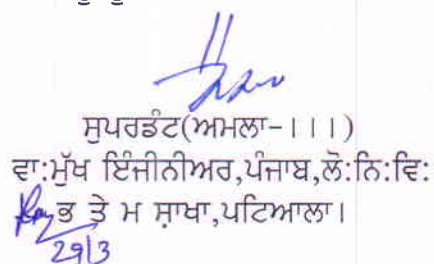 ਸੁਪਰਡੰਟ(ਅਮਲਾ-।।।)
ਵਾ:ਮੁੱਖ ਇੰਜੀਨੀਅਰ,ਪੰਜਾਬ,ਲੋ:ਨਿ:ਵਿ:
ਭ ਤੇ ਮ ਸ਼ਾਖਾ,ਪਟਿਆਲਾ।
29/3